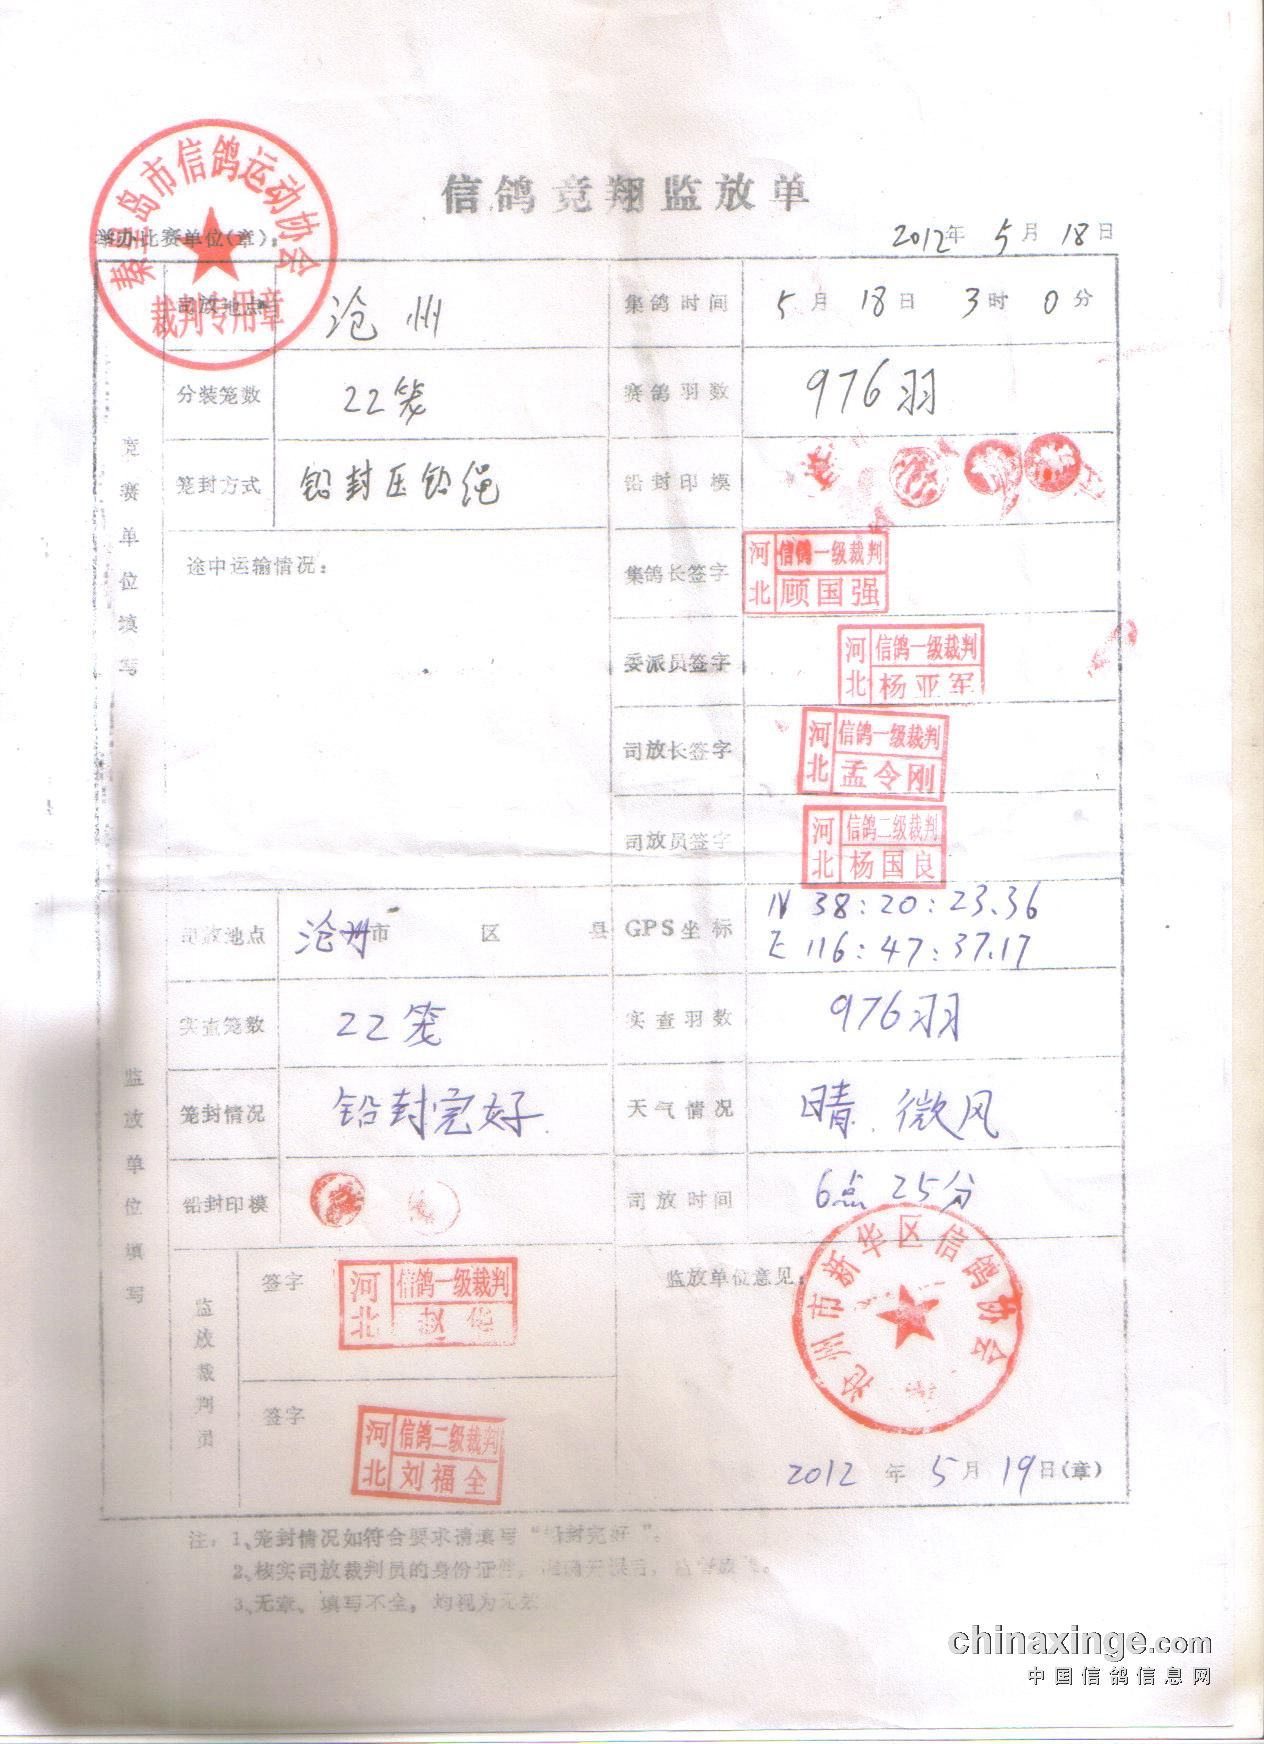 信鸽竞翔监放单
秦皇岛市信鸽运动协会
裁判专用章
举办比赛单位(章):
2012年 5月 18日
竞赛单位填写
司放地点 沧州 集鸽时间 5月 18日 3时 0分
分装笼数 22笼 赛鸽羽数 976羽
笼封方式 铅封压铅绳 铅封印模
途中运输情况:
集鸽长签字 河北 信鸽一级裁判 顾国强
委派员签字 河北 信鸽一级裁判 杨亚军
司放长签字 河北 信鸽一级裁判 孟令刚
司放员签字 河北 信鸽二级裁判 杨国良
监放单位填写
司放地点 沧州市 区 县 GPS坐标 N 38:20:23.36
E 116:47:37.17
实查笼数 22笼 实查羽数 976羽
笼封情况 铅封完好. 天气情况 晴.微风
铅封印模 司放时间 6点25分
监放裁判员
签字 河北 信鸽一级裁判 赵华
签字 河北 信鸽二级裁判 刘福全
监放单位意见:
沧州市新华区信鸽协会
2012年 5月 19日(章)
注:1、笼封情况如符合要求请填写“铅封完好”。
2、核实司放裁判员的身份证件,
3、无章、填写不全,均视为无效
chinaxinge.com
中国信鸽信息网